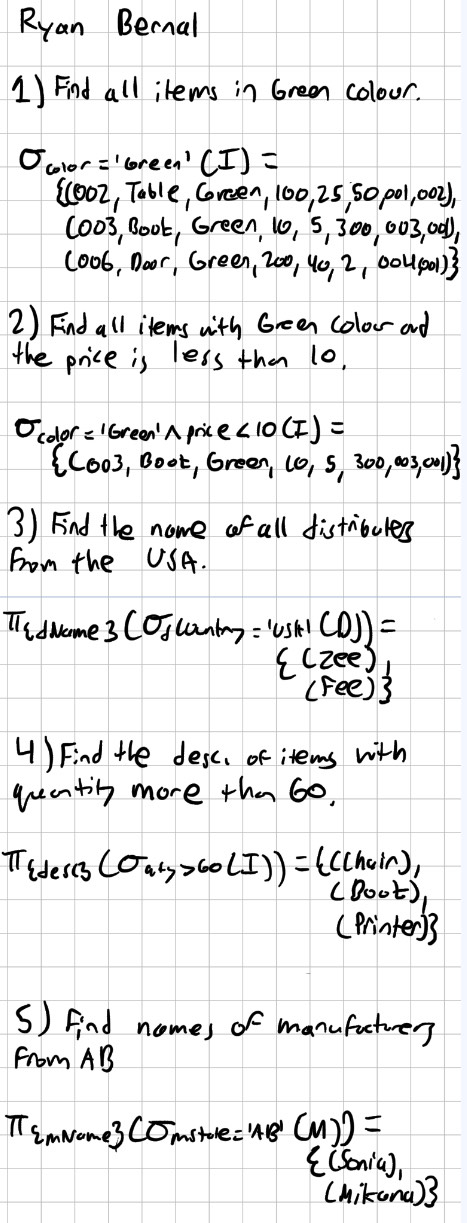 Ryan Bernal
1) Find all items in Green colour.
σ color = 'Green' (I) =
{(002, Table, Green, 100, 25, 50, 001, 002),
(003, Boot, Green, 10, 5, 300, 003, 001),
(006, Door, Green, 200, 40, 2, 004, 001)}
2) Find all items with Green colour and
the price is less than 10.
σ color = 'Green' ∧ price < 10 (I) =
{(003, Boot, Green, 10, 5, 300, 003, 001)}
3) Find the name of all distributers
from the USA.
π {dName} (σ dCountry = 'USA' (D)) =
{(Zee),
(Fee)}
4) Find the desc. of items with
quantity more than 60.
π {desc} (σ qty > 60 (I)) = {(Chair),
(Boot),
(Printer)}
5) Find names of manufacturers
from AB
π {mName} (σ mstate = 'AB' (M)) =
{(Sonia),
(Mikona)}